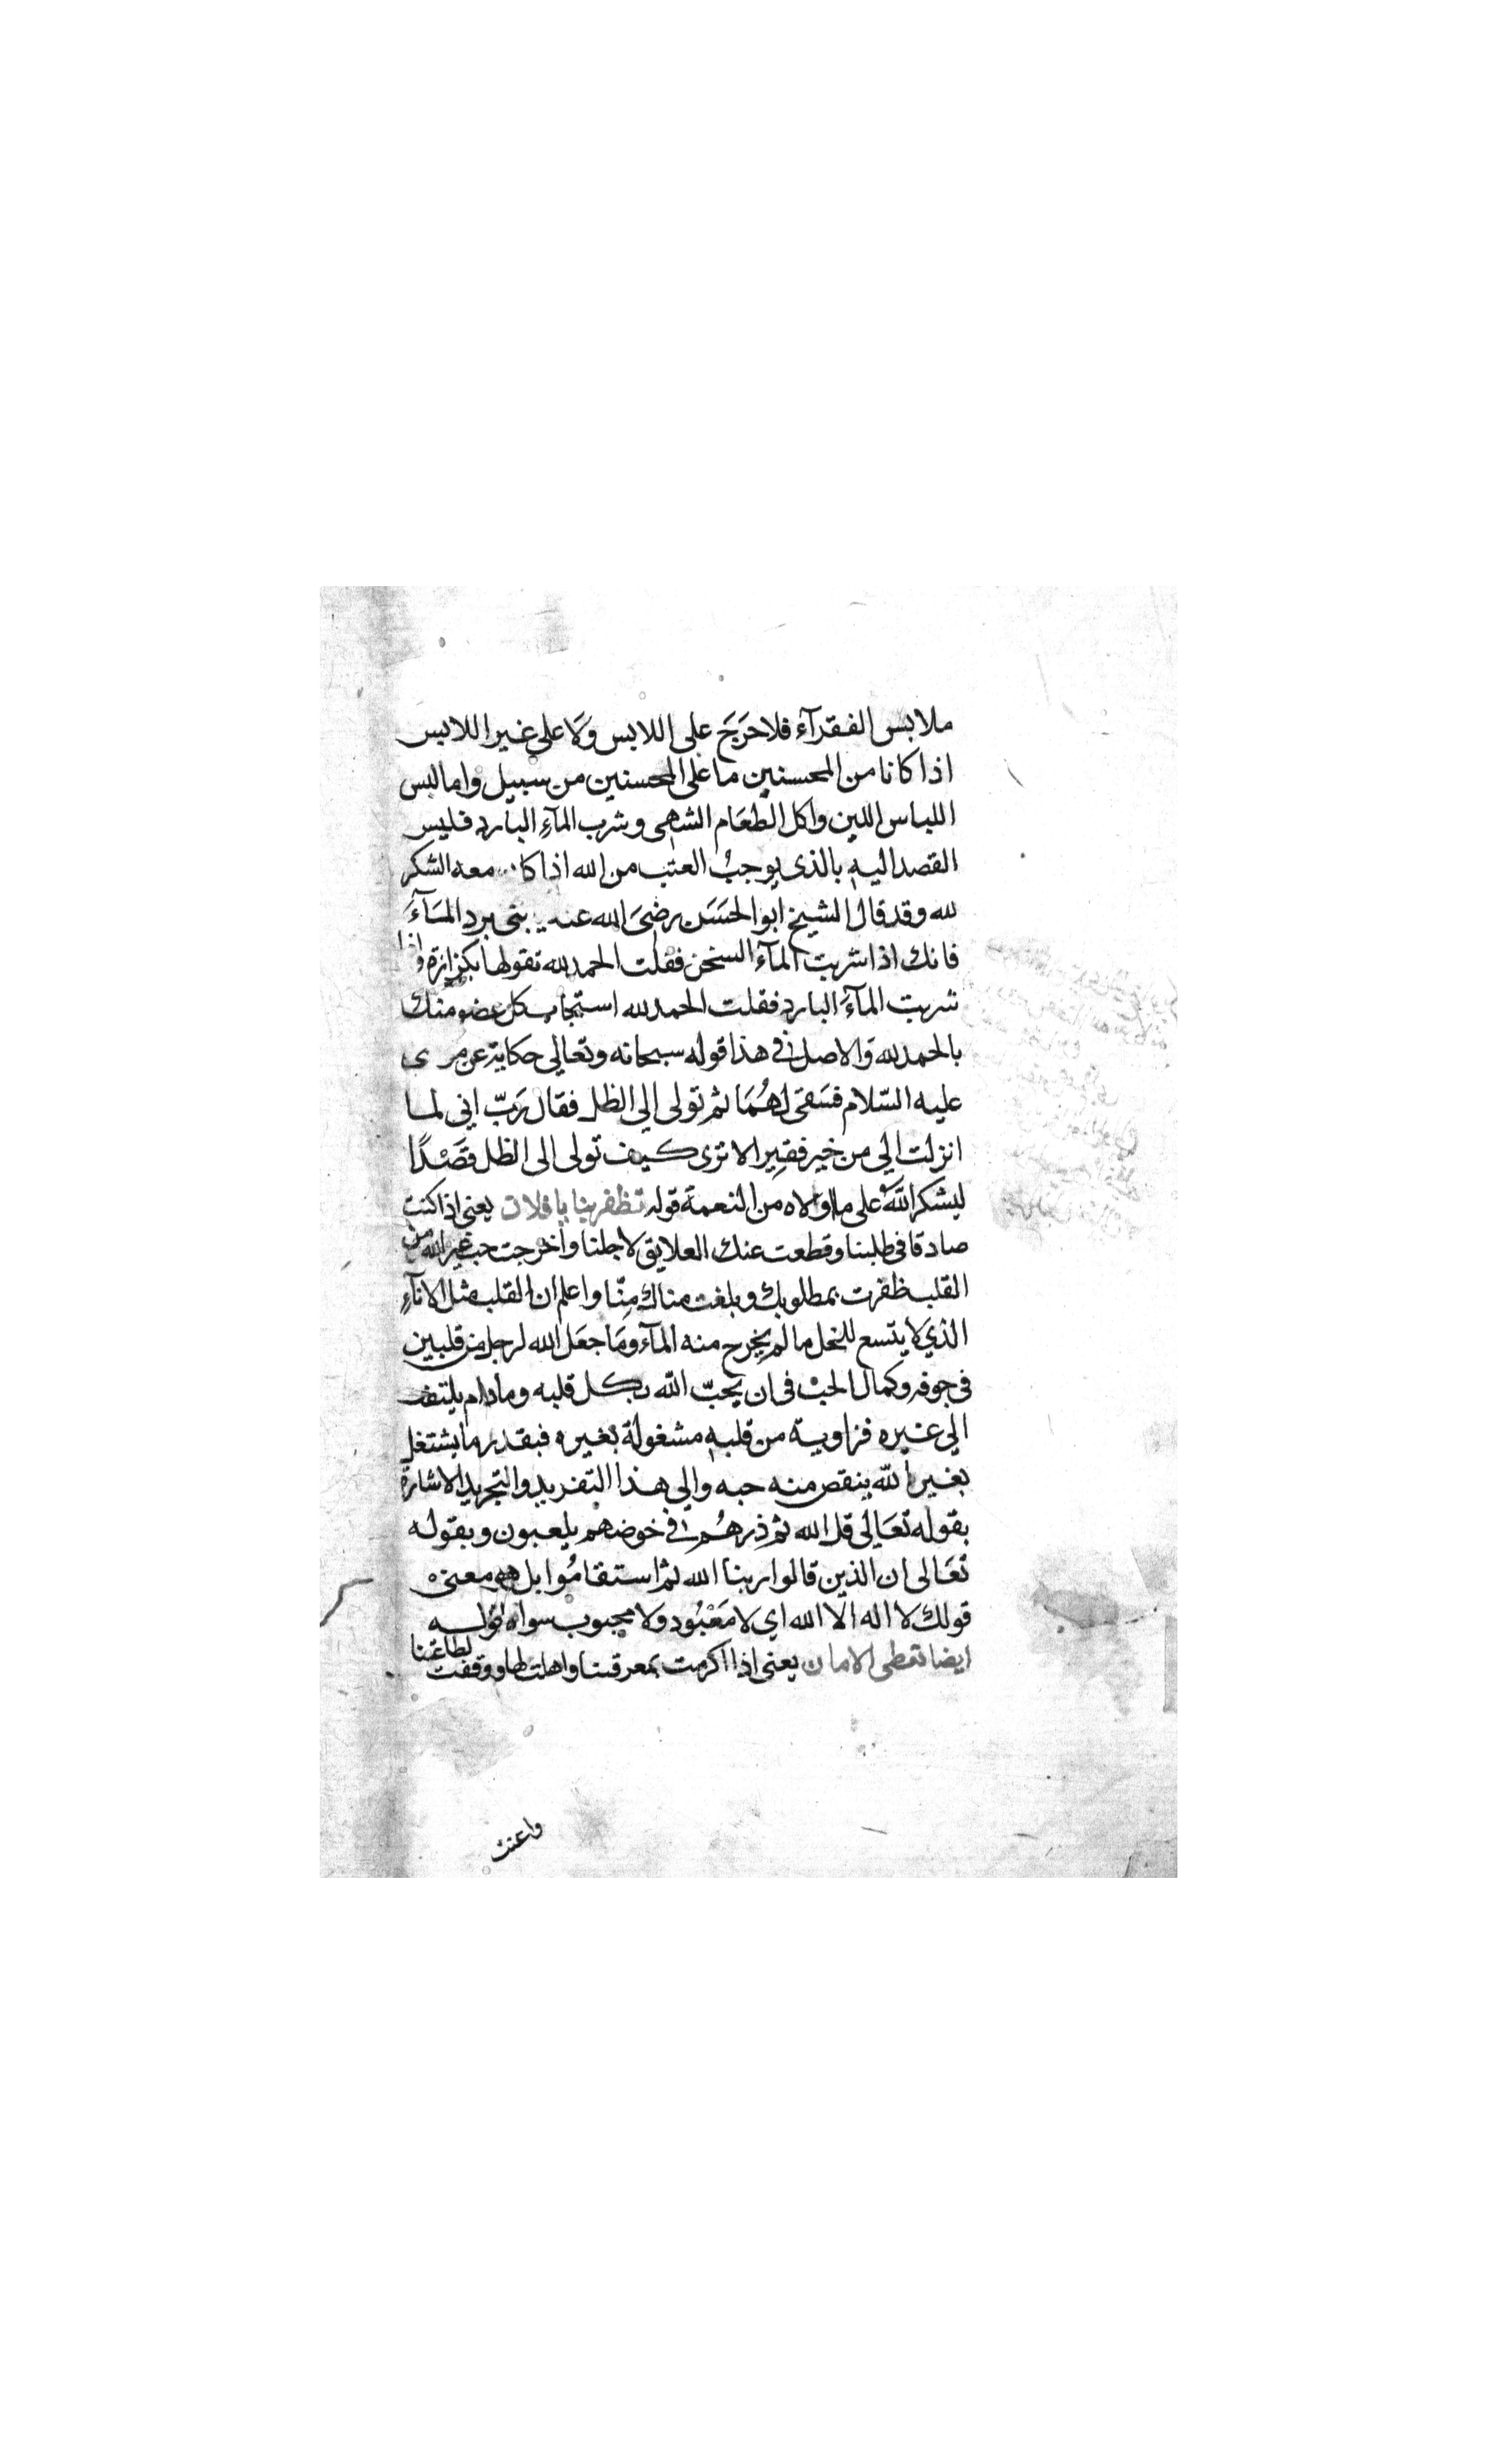 ملابس الفقرآء فلا حَرَجَ على اللابس وَلَا على غير اللابس
اذا كانا من المحسنين ما على المحسنين من سبيل واما لبس
اللباس اللين واكل الطعَام الشهى وشرب المآءِ البارد فليس
القصد اليه بالذى يوجبُ العتب من الله اذا كا معه الشكر
لله وقد قال الشيخ ابو الحسَن رضىَ الله عنه بنى برد المَآءَ
فانك اذا شربت المآء السخن فقلت الحمد لله تقولها بكزازة واذا
شربت المآءَ البارد فقلت الحمد لله استجاب كل عضو منك
بالحمد لله وَالاصل فى هذا قوله سبحانه وتعالى حكاية عن
عليه السّلام فسَقى لهُمَا ثم تولى الى الظل فقال رَبّ انى لما
انزلت الى من خير فقير الا ترى كيف تولى الى الظل قصَدًا
ليشكر اللّه على ما اولاه من النعمة قوله تظفر بنا يا فلان يعنى اذا كنت
صادقا فى طلبنا وقطعت عنك العلايق لاجلنا واخرجت حب غير الله من
القلب ظفرت بمطلوبك وبلغت مناك مِنّا واعلم ان القلب مثل الانآءِ
الذي لا يتسع للخل ما لم يخرج منه المآء ومَا جعَل الله لرجل من قلبين
فى جوفه وكمال الحب فى ان يحبّ اللّه بكل قلبه وما دام يلتفت
الى غيره فزاوية من قلبه مشغولة بغيره فبقدر ما يشتغل
بغير اللّه ينقص منه حبه والى هذا التفريد والتجريد الاشارة
بقوله تعَالى قل الله ثم ذرهُم فى خوضهم يلعبون وبقوله
تعَالى ان الذين قالوا ربنا الله ثم استقامُوا بل هو معنى
قولك لا اله الا الله اى لا مَعْبُود ولا محبوب سواه قوله
ايضا تعطى الامان يعنى اذا اكرمت بمعرفتنا واهلت لها ووقفت لطاعتنا
واعنت